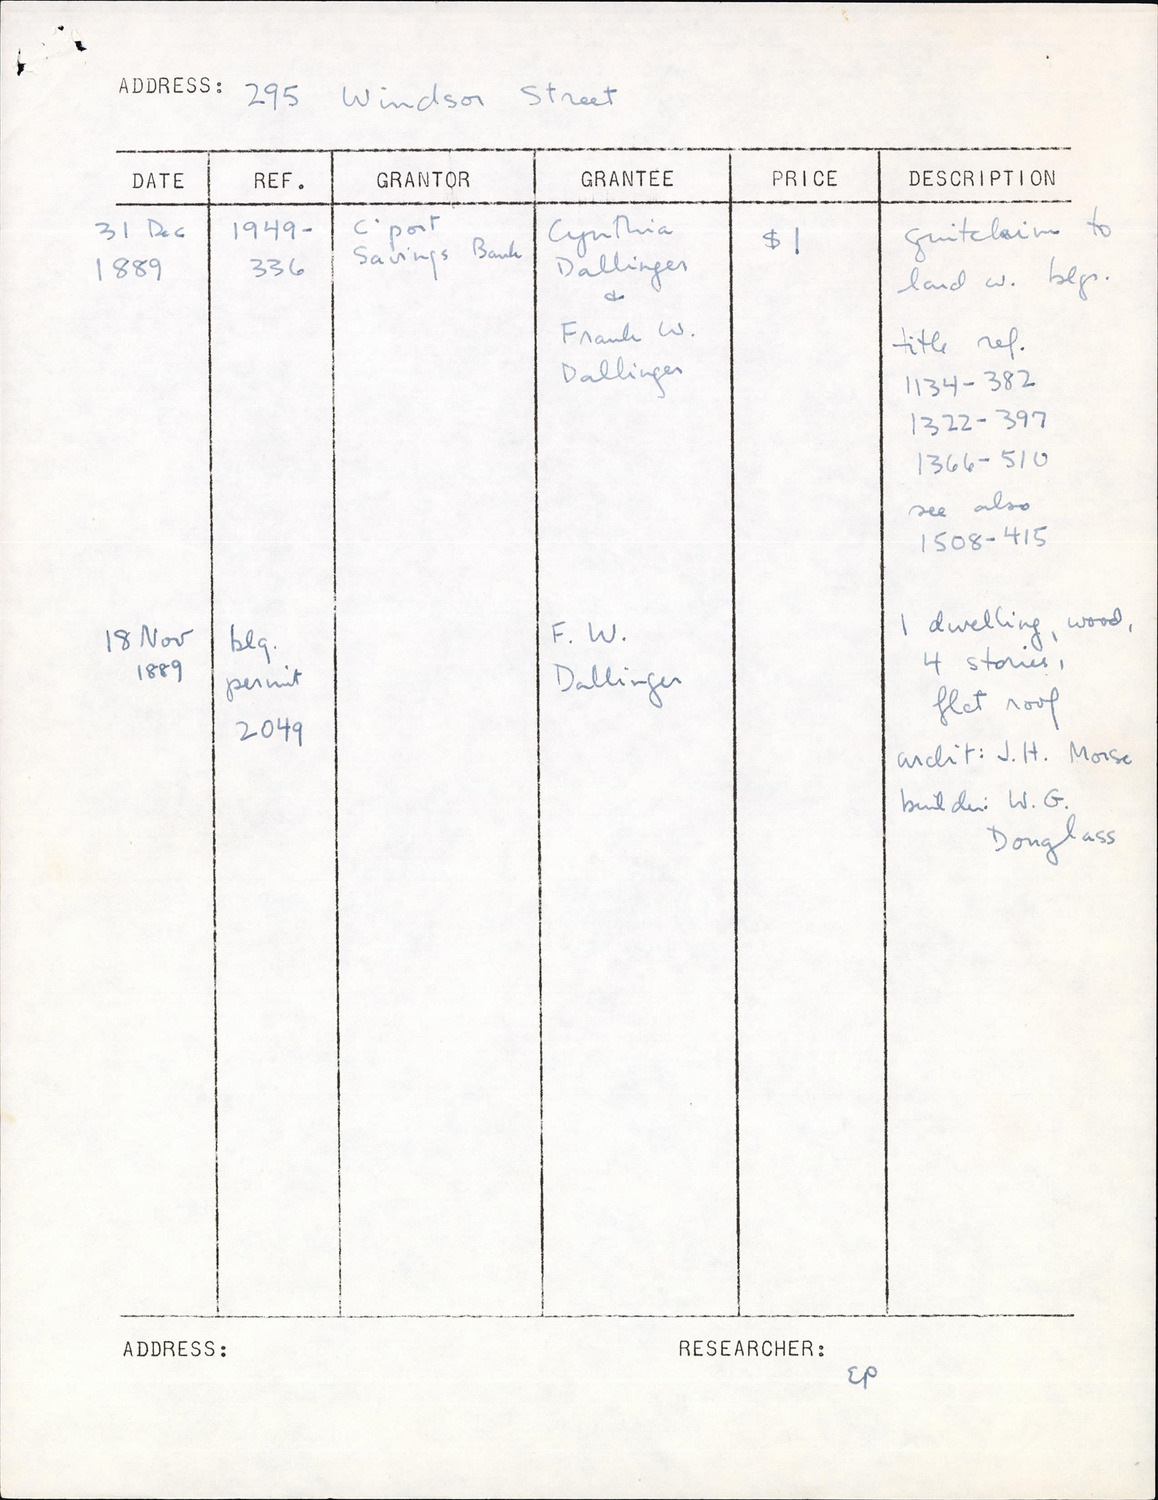 ADDRESS: 295 Windsor Street
DATE REF. GRANTOR GRANTEE PRICE DESCRIPTION
31 Dec
1889
1949-
336
C'port
Savings Bank
Cynthia
Dallinger
&
Frank W.
Dallinger
$1
quitclaim to
land w. blgs.
title ref.
1134-382
1322-397
1366-510
see also
1508-415
18 Nov
1889
blg.
permit
2049
F. W.
Dallinger
1 dwelling, wood,
4 stories,
flat roof
archit: J.H. Morse
builder: W. G.
Douglass
ADDRESS:
RESEARCHER:
EP